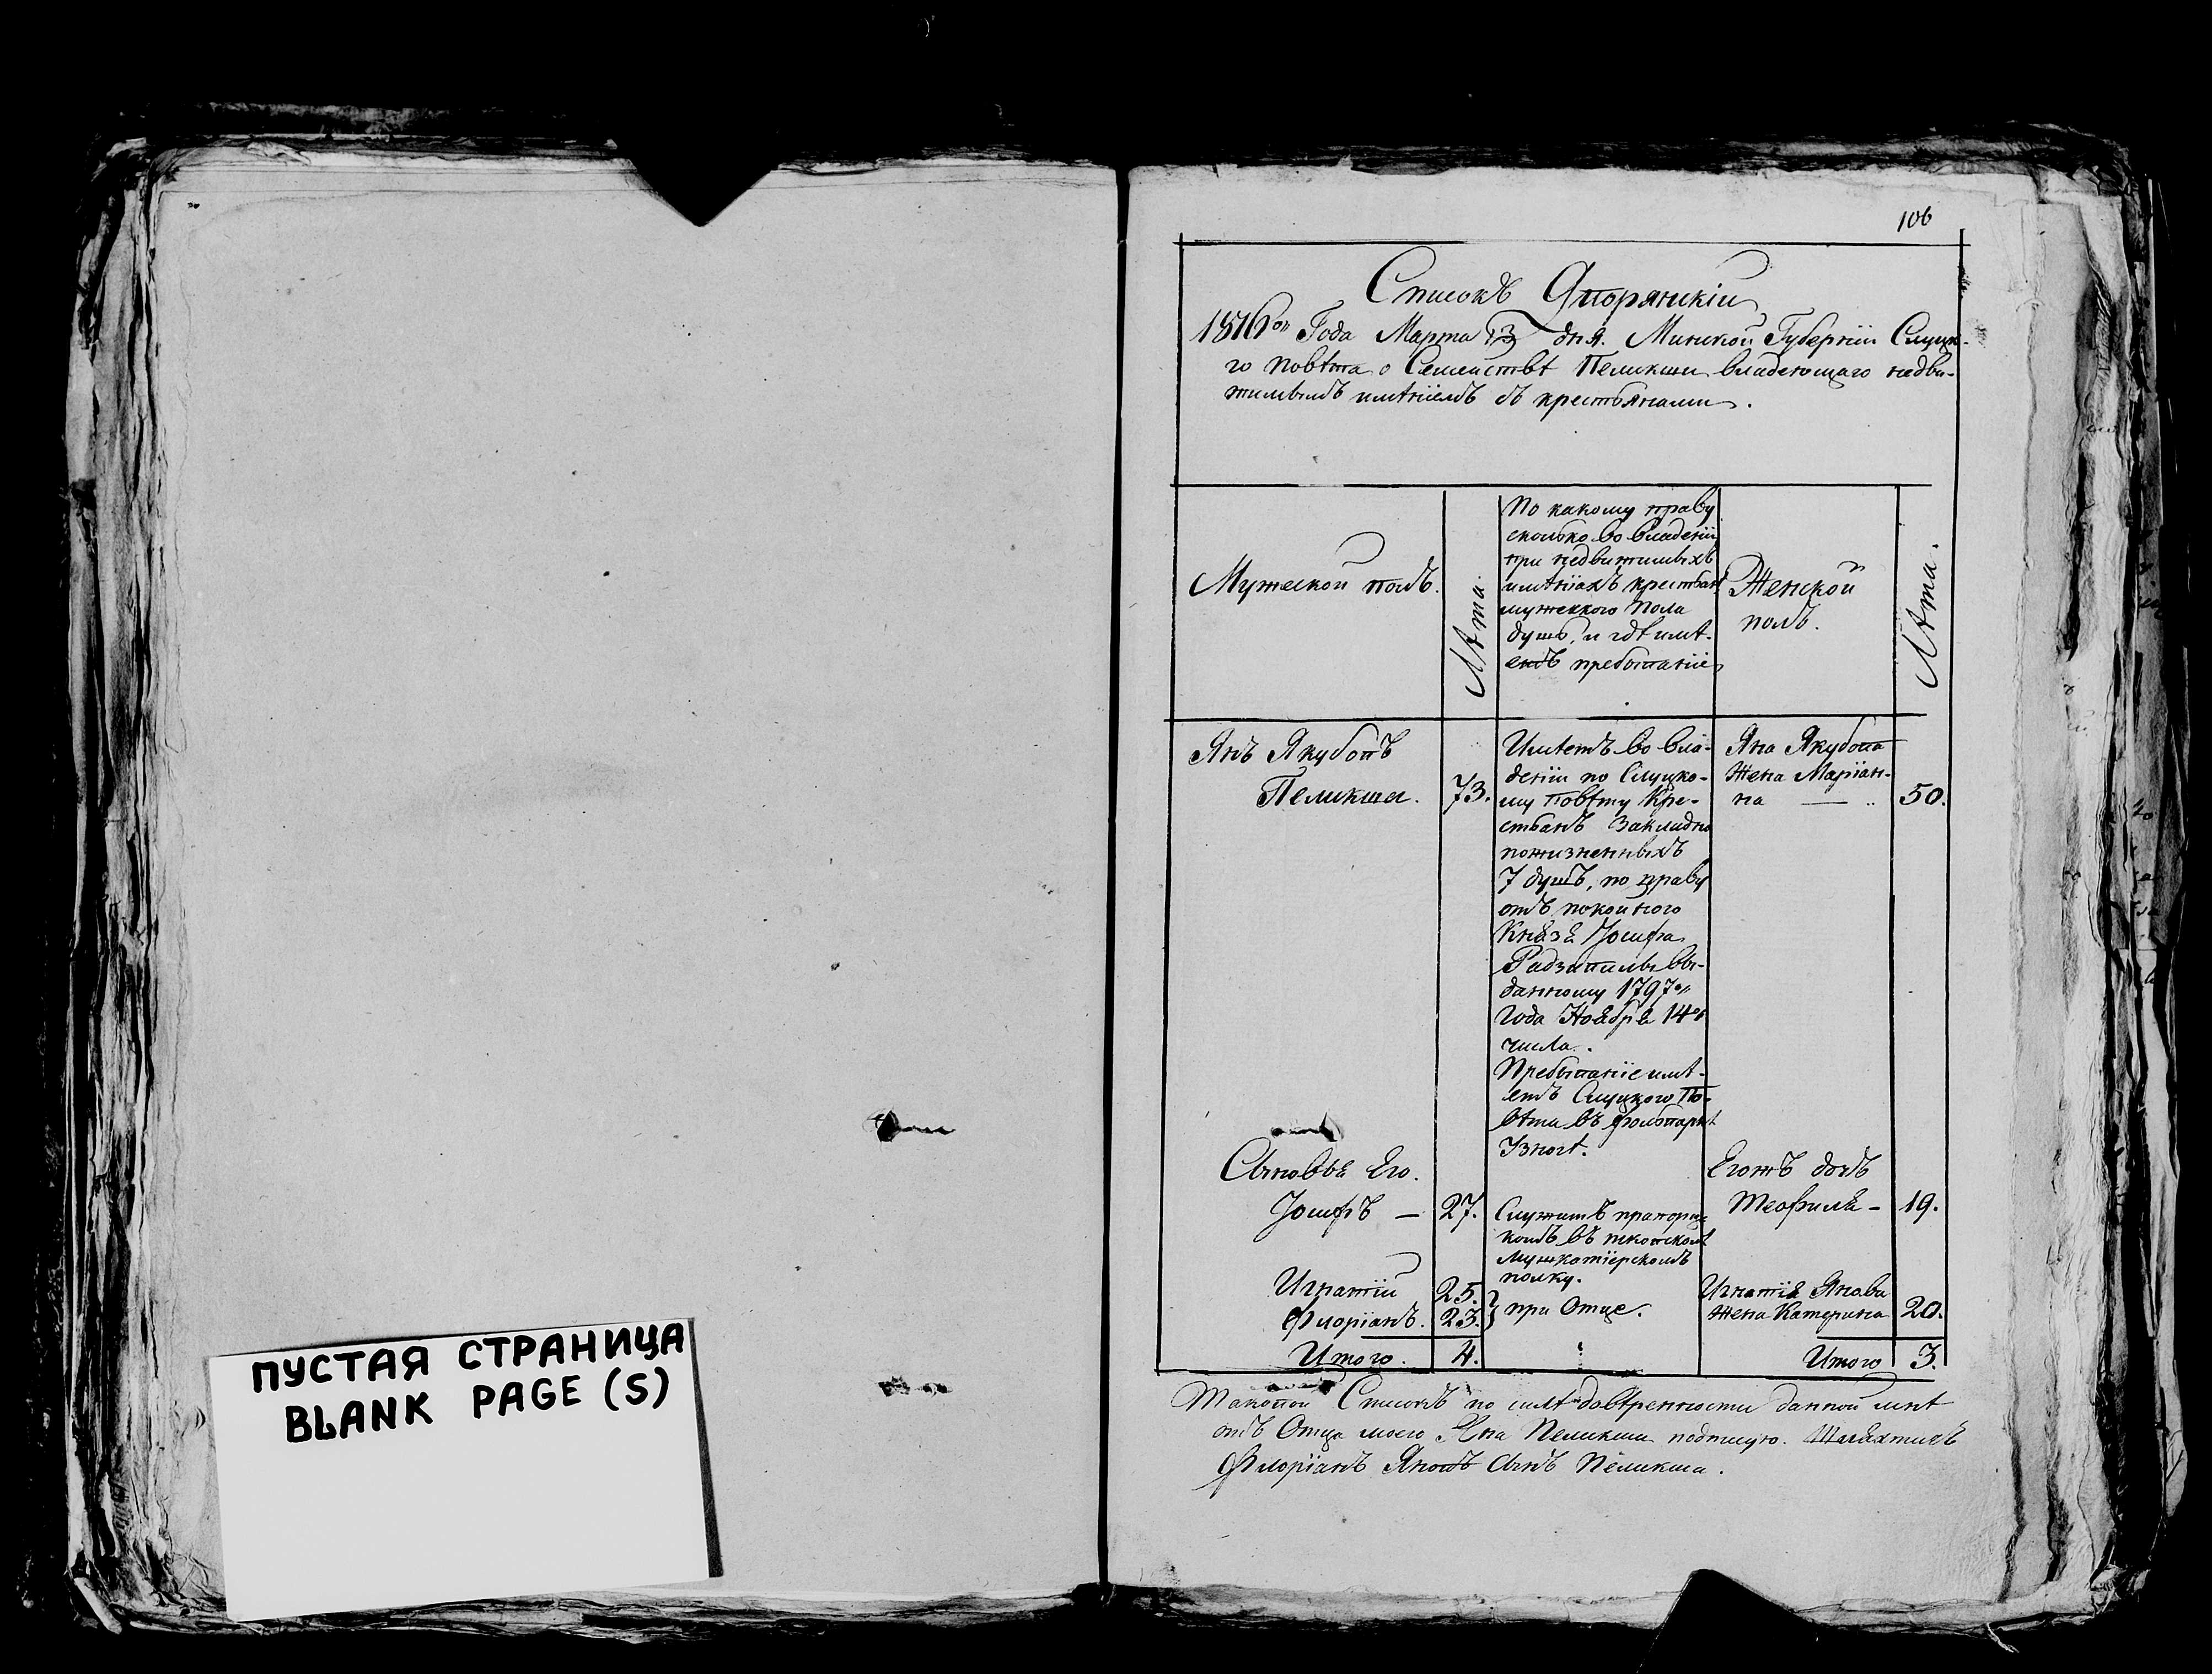 ПУСТАЯ СТРАНИЦА
BLANK PAGE (S)
106
Списокъ Дворянскіи
1816го Года Марта 13 дня. Минской Губерніи Слуцк-
го повѣта о Семействѣ Пеликши владеющаго недви-
жимымъ имѣніемъ съ крестьянами.
Мужеской полъ.
Лѣта.
По какому праву
сколько во владеніи
при недвижимыхъ
имѣніахъ крестьан
мужеского пола
душъ, и гдѣ имѣ-
етъ пребываніе
Женской
полъ.
Лѣта.
Янъ Якубовъ
Пеликша. 73.
Имѣетъ во вла-
деніи по Слуцко-
му повѣту Кре-
стьанъ Закладно
пожизненныхъ
7 душъ, по праву
отъ покойного
Князя Іосифа
Радзивилы вы-
данному 1797го
года Ноября 14го
числа.
Пребываніе имѣ-
етъ Слуцкого По-
вѣта въ фольварк
Узногѣ.
Яна Якубова
Жена Маріан-
на — 50.
Сыновья Его.
Іосифъ — 27.
Служитъ прапорщи
комъ въ
мушкатіерскомъ
полку.
Егожъ дочъ
Теофиля — 19.
Игнатіи 25.
Флоріанъ. 23.
при Отце.
Игнатія Янова
Жена Катерина 20.
Итого. 4.
Итого 3.
Таковой Списокъ по силѣ довѣренности данной мнѣ
отъ Отца моего Яна Пеликши подпишу. Шляхтичъ
Флоріанъ Яновъ сынъ Пеликша.